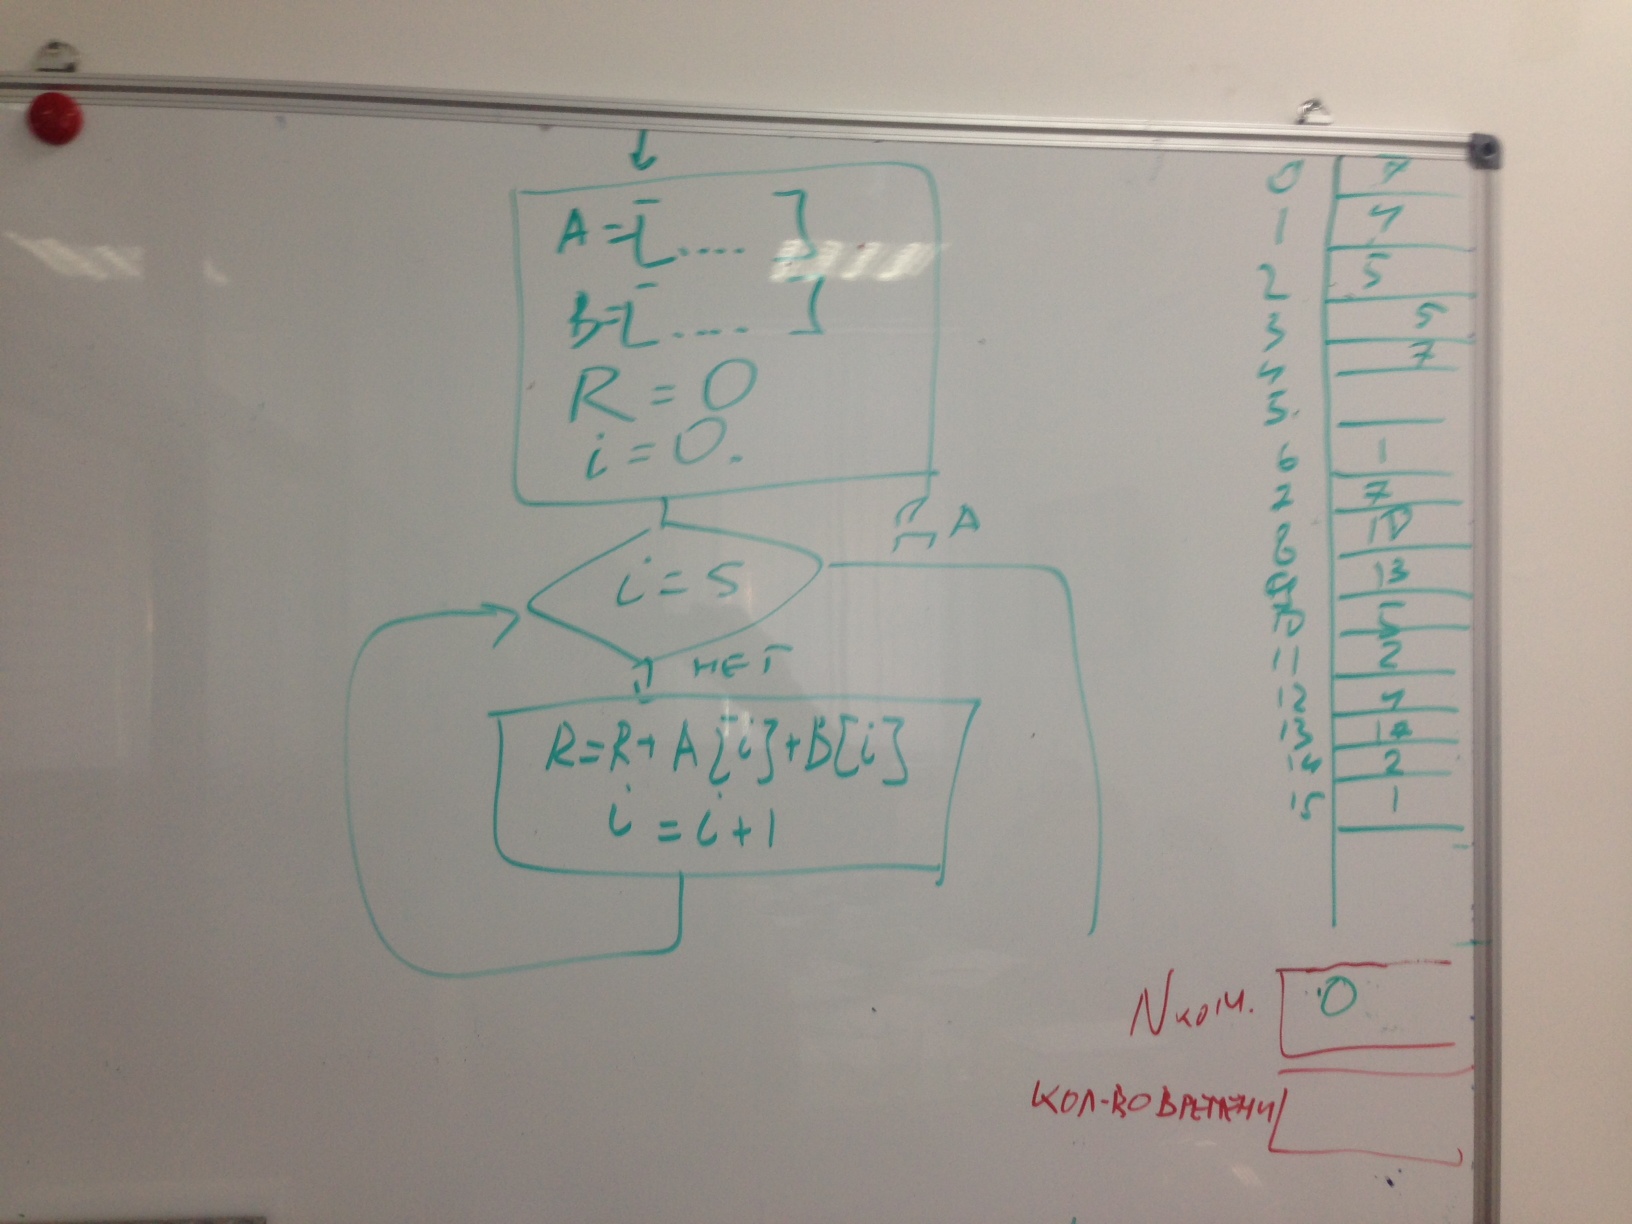 A=[.... ]
B=[.... ]
R = 0
i = 0.
i = 5
ДА
НЕТ
R=R+A[i]+B[i]
i = i+1
0 7
1 4
2 5
3 5
4 7
5.
6 1
7 7
8 10
9 13
10 5
11 2
12 4
13
14 2
15 1
Nком. 0
КОЛ-ВО ВРЕМЕНИ